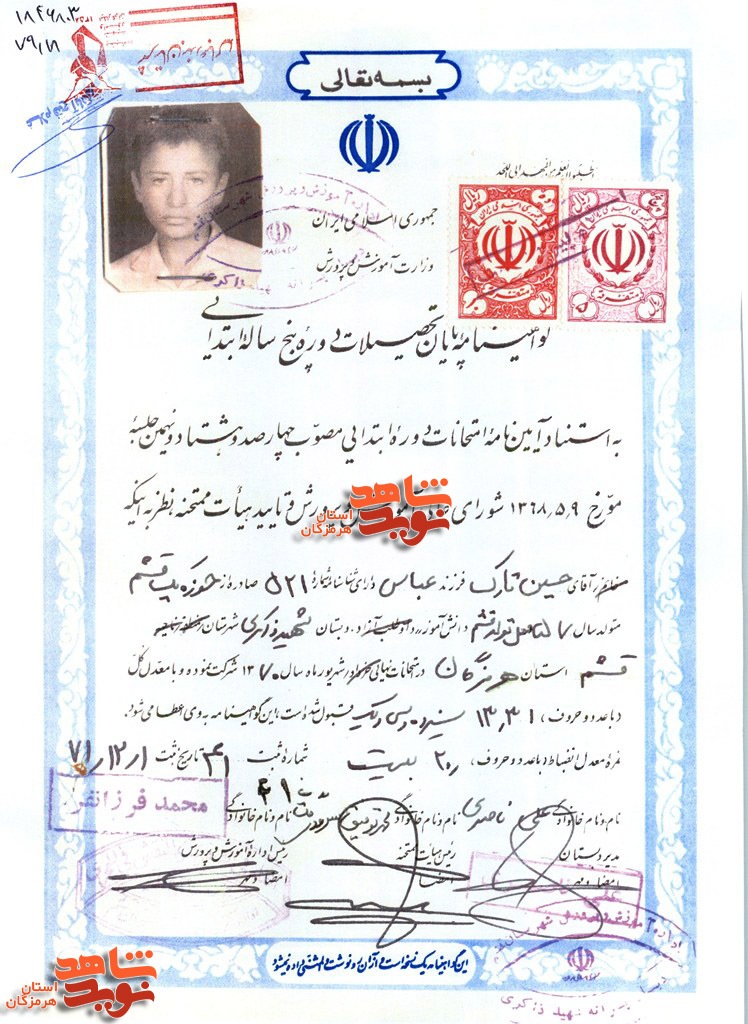 ۱۸۴۶۸۰۳
۷۹٫۱۱
بسمه تعالی
اطلبوا العلم من المهد الی اللحد
جمهوری اسلامی ایران
وزارت آموزش و پرورش
گواهینامهٔ پایان تحصیلات دورهٔ پنج سالهٔ ابتدائی
به استناد آیین نامهٔ امتحانات دورهٔ ابتدایی مصوب چهارصد و هشتاد و نهمین جلسهٔ
مورخ ۱۳۶۸٫۵٫۹ شورای عالی آموزش و پرورش و تایید هیأت ممتحنه نظر به اینکه
خانم/آقای حسین تارک فرزند عباس دارای شناسنامهٔ شمارهٔ ۵۲۱ صادره از حوزه یک قشم
متولد سال متولد قشم دانش آموز - داوطلب آزاد - دبستان شهید ذاکری شهرستان
قشم استان هرمزگان در امتحانات نهایی خرداد/شهریور ماه سال ۱۳۷۰ شرکت نموده و با معدل کل
(با عدد و حروف) ۱۳٫۳۱ سیزده و سی و یک قبول شده است، این گواهینامه به وی اعطا می شود.
نمرهٔ معدل انضباط (با عدد و حروف) ۲۰ بیست شمارهٔ ثبت ۴۱ تاریخ ثبت ۷۱٫۱۲٫۱
محمد فرزانفر
نام و نام خانوادگی علی ناصری نام و نام خانوادگی نام و نام خانوادگی
مدیر دبستان رئیس هیأت ممتحنه رئیس ادارهٔ آموزش و پرورش
امضاء و مهر امضاء امضاء و مهر
این گواهینامه یک نسخه است و از آن رونوشت یا المثنی داده نمیشود
شاهد نوید استان هرمزگان
شاهد نوید استان هرمزگان